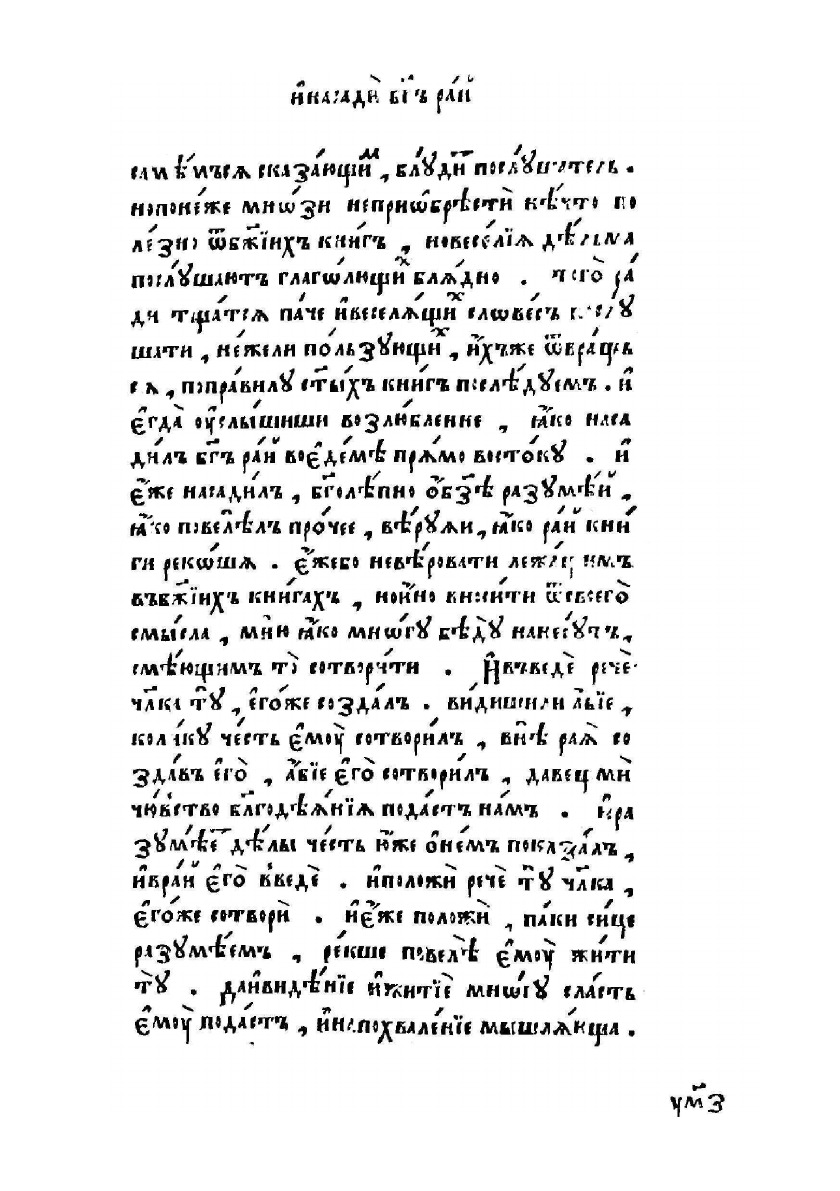 и҆насадѝ бг҃ъ ра́й
самѣ́мъся сказа́ющимъ, блуди́ послу́шатель.
нопоне́же мнѡ́зи непрїѡбрѣстѝ нѣ́что по
ле́зно ѿбж҃їихъ кни́гъ, новесе́лїя дѣ́льма
послу́шаютъ глаго́лющих бля́дно. чесого̀ ра́
ди тща́тся па́че и҆веселя́щих слѡве́съ послу́
шати, не́жели по́льзующих, и҆́хъже ѿвра́щь
ся, попра́вилу ст҃ы́хъ кни́гъ послѣ́дуемъ. и҆
є҆гда̀ оу҆слы́шиши возлю́бленне, ꙗ҆́ко наса
ди́лъ бг҃ъ ра́й воє҆де́мѣ пря́мо восто́ку. и҆
є҆́же насади́лъ, бг҃олѣ́пно ѡ҆бз҃ѣ разумѣ́й,
ꙗ҆́ко повелѣ́лъ про́чее, вѣ́руѧи, ꙗ҆́ко ра́й кни
ги реко́ша. є҆́жебо невѣ́ровати лежа́щимъ
въбж҃їихъ кни́гахъ, нои҆́но вноси́ти ѿсвоего̀
смы́сла, мню̀ ꙗ҆́ко мнѡ́гу бѣ́ду нанесу́тъ,
смѣ́ющимъ то̀ сотвори́ти. И҆въведѐ речѐ
чл҃ка тꙋ̀, є҆го́же созда́лъ. ви́дишили а҆́бїе,
коли́ку че́сть є҆моу̀ сотвори́лъ, внѣ̀ рая̀ со
зда́въ є҆го̀, а҆́бїе є҆го̀ сотвори́лъ, давещмѝ
чю́вство благодѣя́нїя пода́стъ на́мъ. и҆ра
зумѣ́ем дѣ́лы че́сть ю҆́же ѻ҆не́мъ показа́лъ,
и҆вра́й є҆го̀ введѐ. и҆положѝ речѐ тꙋ̀ чл҃ка,
є҆го́же сотворѝ. и҆є҆́же положѝ, па́ки си́це
разумѣ́емъ, ре́кше повелѣ̀ є҆моу̀ жи́ти
тꙋ̀. даи҆ви́дѣнїе и҆житїѐ мнѡ́гу сла́сть
є҆моу̀ пода́стъ, и҆напохвале́нїе мышля́хуща.
ум҃з